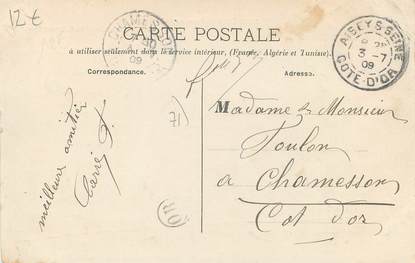 12 €
CHAMESSON
09
CARTE POSTALE
à utiliser seulement dans le service intérieur, (France, Algérie et Tunisie).
Correspondance.
Adresse.
AISEY S SEINE
3 -7
09
COTE-D'OR
71
Madame & Monsieur
Toulon
a Chamesson
Cot d'or
meilleure amitier
Carré
OR